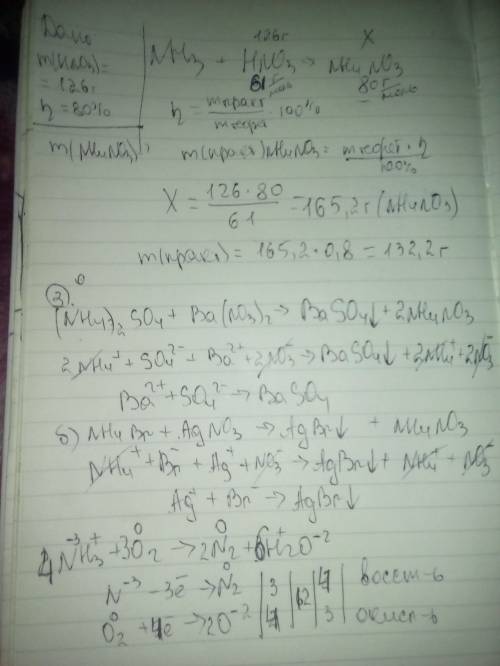 Дано
m(HNO3)=
= 126г
η = 80%
m(NH4NO3)
126г X
NH3 + HNO3 → NH4NO3
61 г/моль 80 г/моль
η = mпракт/mтеор · 100%
m(практ)NH4NO3 = mтеор · η/100%
X = 126·80/61 = 165,2г (NH4NO3)
m(практ) = 165,2·0,8 = 132,2г
3)
(NH4)2SO4 + Ba(NO3)2 → BaSO4↓ + 2NH4NO3
2NH4⁺ + SO4²⁻ + Ba²⁺ + 2NO3⁻ → BaSO4↓ + 2NH4⁺ + 2NO3⁻
Ba²⁺ + SO4²⁻ → BaSO4
б) NH4Br + AgNO3 → AgBr↓ + NH4NO3
NH4⁺ + Br⁻ + Ag⁺ + NO3⁻ → AgBr↓ + NH4⁺ + NO3⁻
Ag⁺ + Br⁻ → AgBr↓
4N⁻³H3⁺ + 3O2⁰ → 2N2⁰ + 6H2⁺O⁻²
N⁻³ - 3ē → N2⁰ | 3 | 12 | 4 | восст-ь
O2⁰ + 4ē → 2O⁻² | 4 | | 3 | окисл-ь